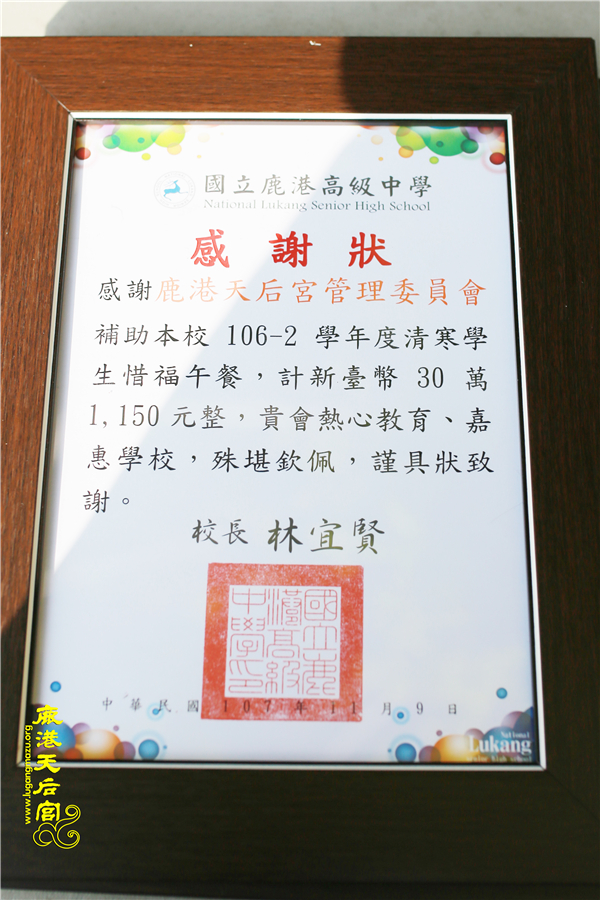 國立鹿港高級中學
National Lukang Senior High School
感謝狀
感謝鹿港天后宮管理委員會
補助本校 106-2 學年度清寒學
生惜福午餐，計新臺幣 30 萬
1,150 元整，貴會熱心教育、嘉
惠學校，殊堪欽佩，謹具狀致
謝。
校長 林宜賢
國立鹿
港高級
中學印
中華民國 107 年 11 月 9 日
National
Lukang
Senior High School
鹿港天后宮
www.lugangmazu.org